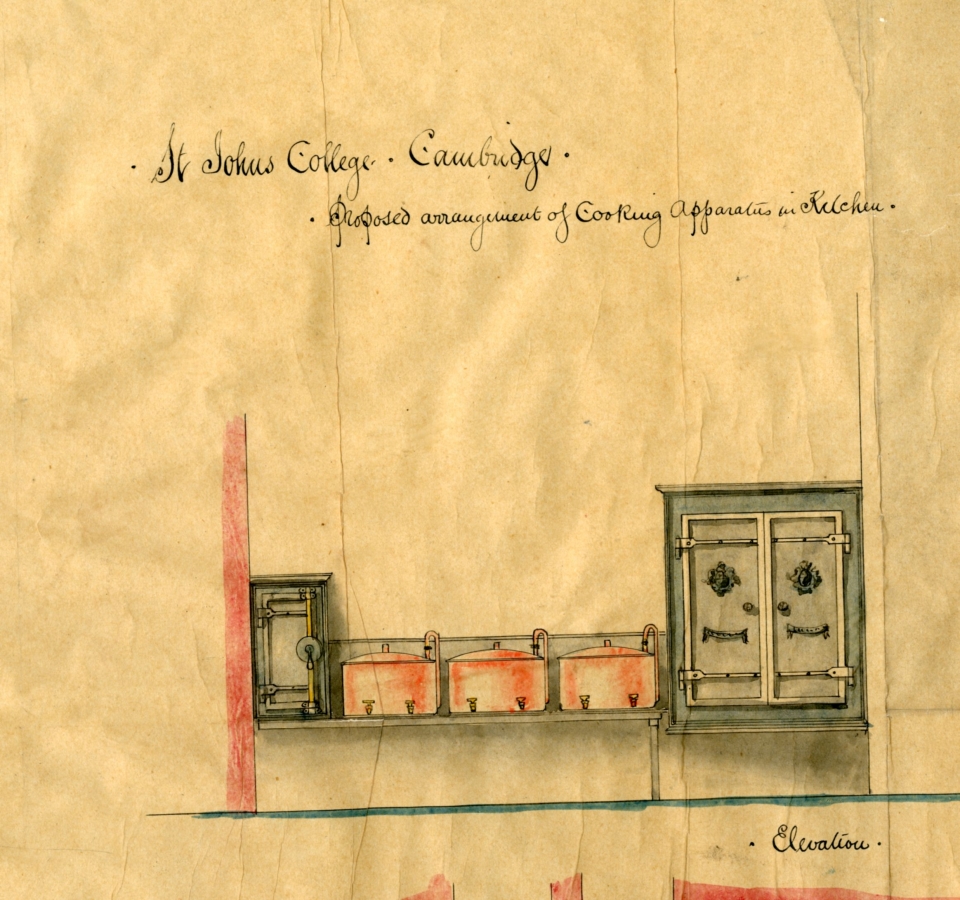 · St Johns College · Cambridge ·
· Proposed arrangement of Cooking Apparatus in Kitchen ·
· Elevation ·